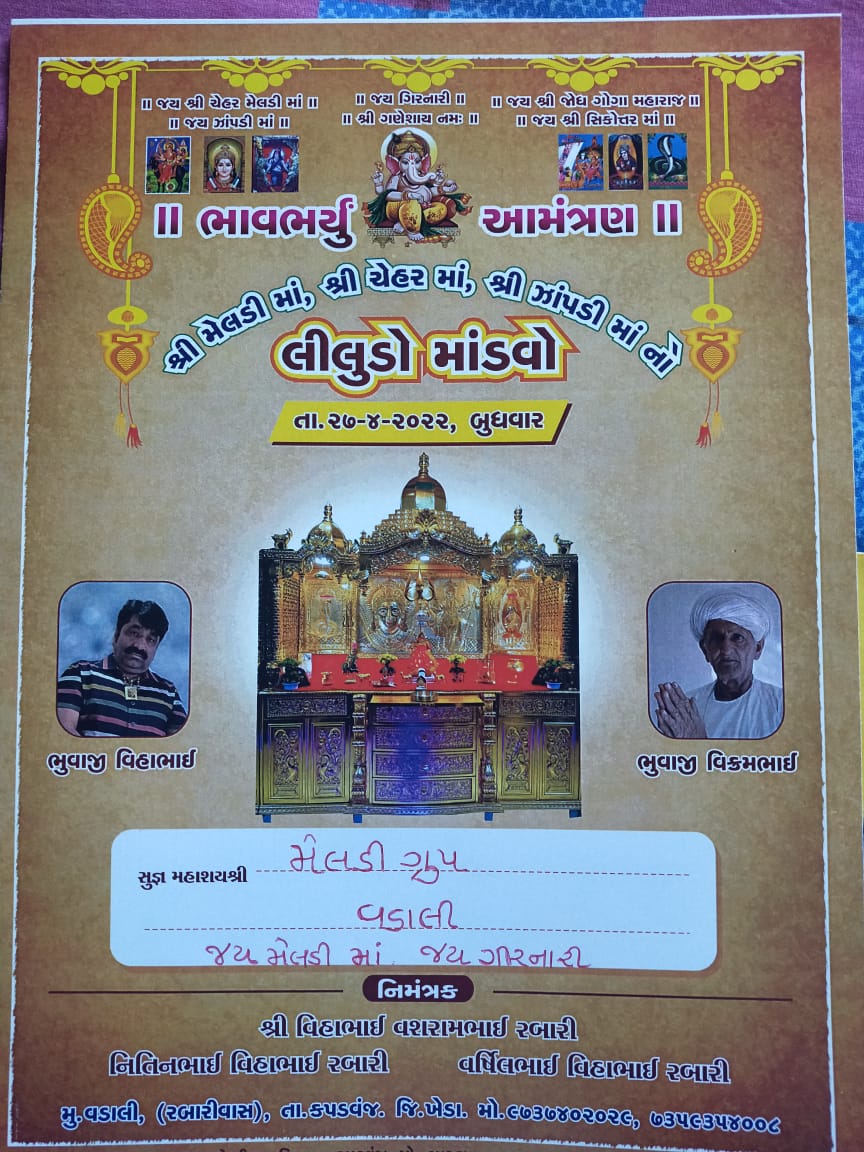 ॥ જય શ્રી ચેહર મેલડી માં ॥
॥ જય ઝાંપડી માં ॥
॥ જય ગિરનારી ॥
॥ શ્રી ગણેશાય નમઃ ॥
॥ જય શ્રી જોધ ગોગા મહારાજ ॥
॥ જય શ્રી સિકોત્તર માં ॥
॥ ભાવભર્યું આમંત્રણ ॥
શ્રી મેલડી માં, શ્રી ચેહર માં, શ્રી ઝાંપડી માં નો
લીલુડો માંડવો
તા.૨૭-૪-૨૦૨૨, બુધવાર
ભુવાજી વિહાભાઈ
ભુવાજી વિક્રમભાઈ
સુજ્ઞ મહાશયશ્રી મેલડી ગ્રુપ
વડાલી
જય મેલડી માં. જય ગીરનારી
નિમંત્રક
શ્રી વિહાભાઈ વશરામભાઈ રબારી
નિતિનભાઈ વિહાભાઈ રબારી વર્ષિલભાઈ વિહાભાઈ રબારી
મુ.વડાલી, (રબારીવાસ), તા.કપડવંજ. જિ.ખેડા. મો.૯૭૩૭૪૦૨૦૨૯, ૭૩૫૯૩૫૪૦૦૮